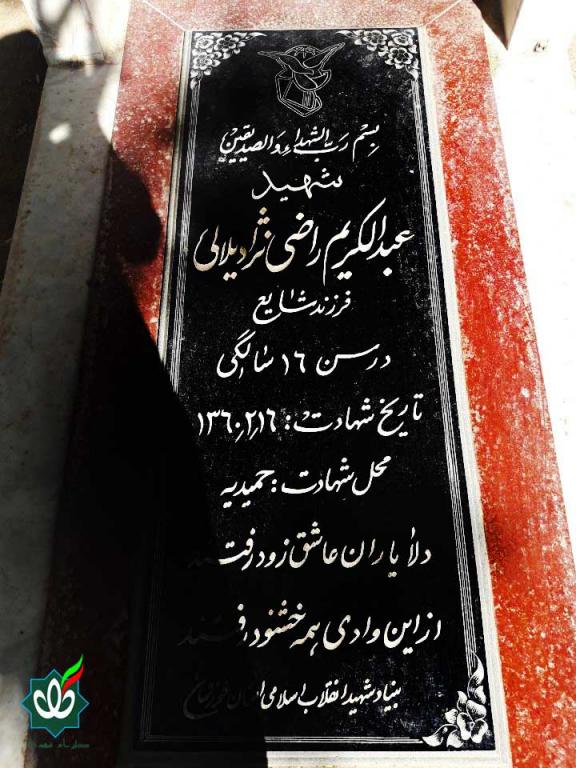 بسم رب الشهداء والصدیقین
شهید
عبدالکریم راضی نژاد یلالی
فرزند شایع
در سن ۱۶ سالگی
تاریخ شهادت: ۱۳۶۰٫۲٫۱۶
محل شهادت: حمیدیه
دلا یاران عاشق زود رفتند
از این وادی همه خشنود رفتند
بنیاد شهید انقلاب اسلامی استان خوزستان